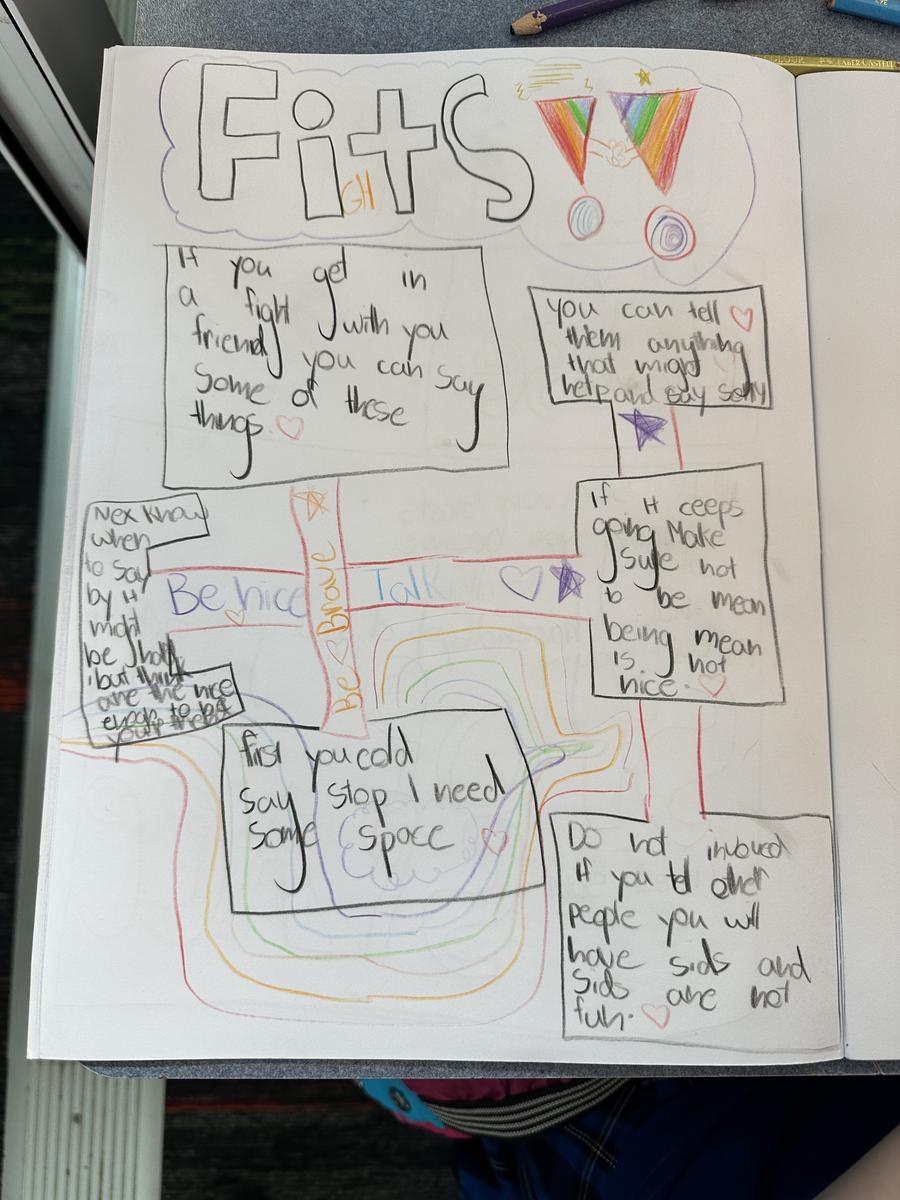 Fits
GH
If you get in
a fight with you
friend you can say
some of these
things.
you can tell
them anything
that migd
help and say sorry
Nex Know
when
to say
by it
might
be
but think
are the nice
to be
your
Be nice
Be Brave
Talk
If it ceeps
going Make
sure not
to be mean
being mean
is not
nice.
first you cold
say stop I need
some space
Do not invoued
if you tell other
people you will
have sids and
sids are not
fun.
FABER CASTELL